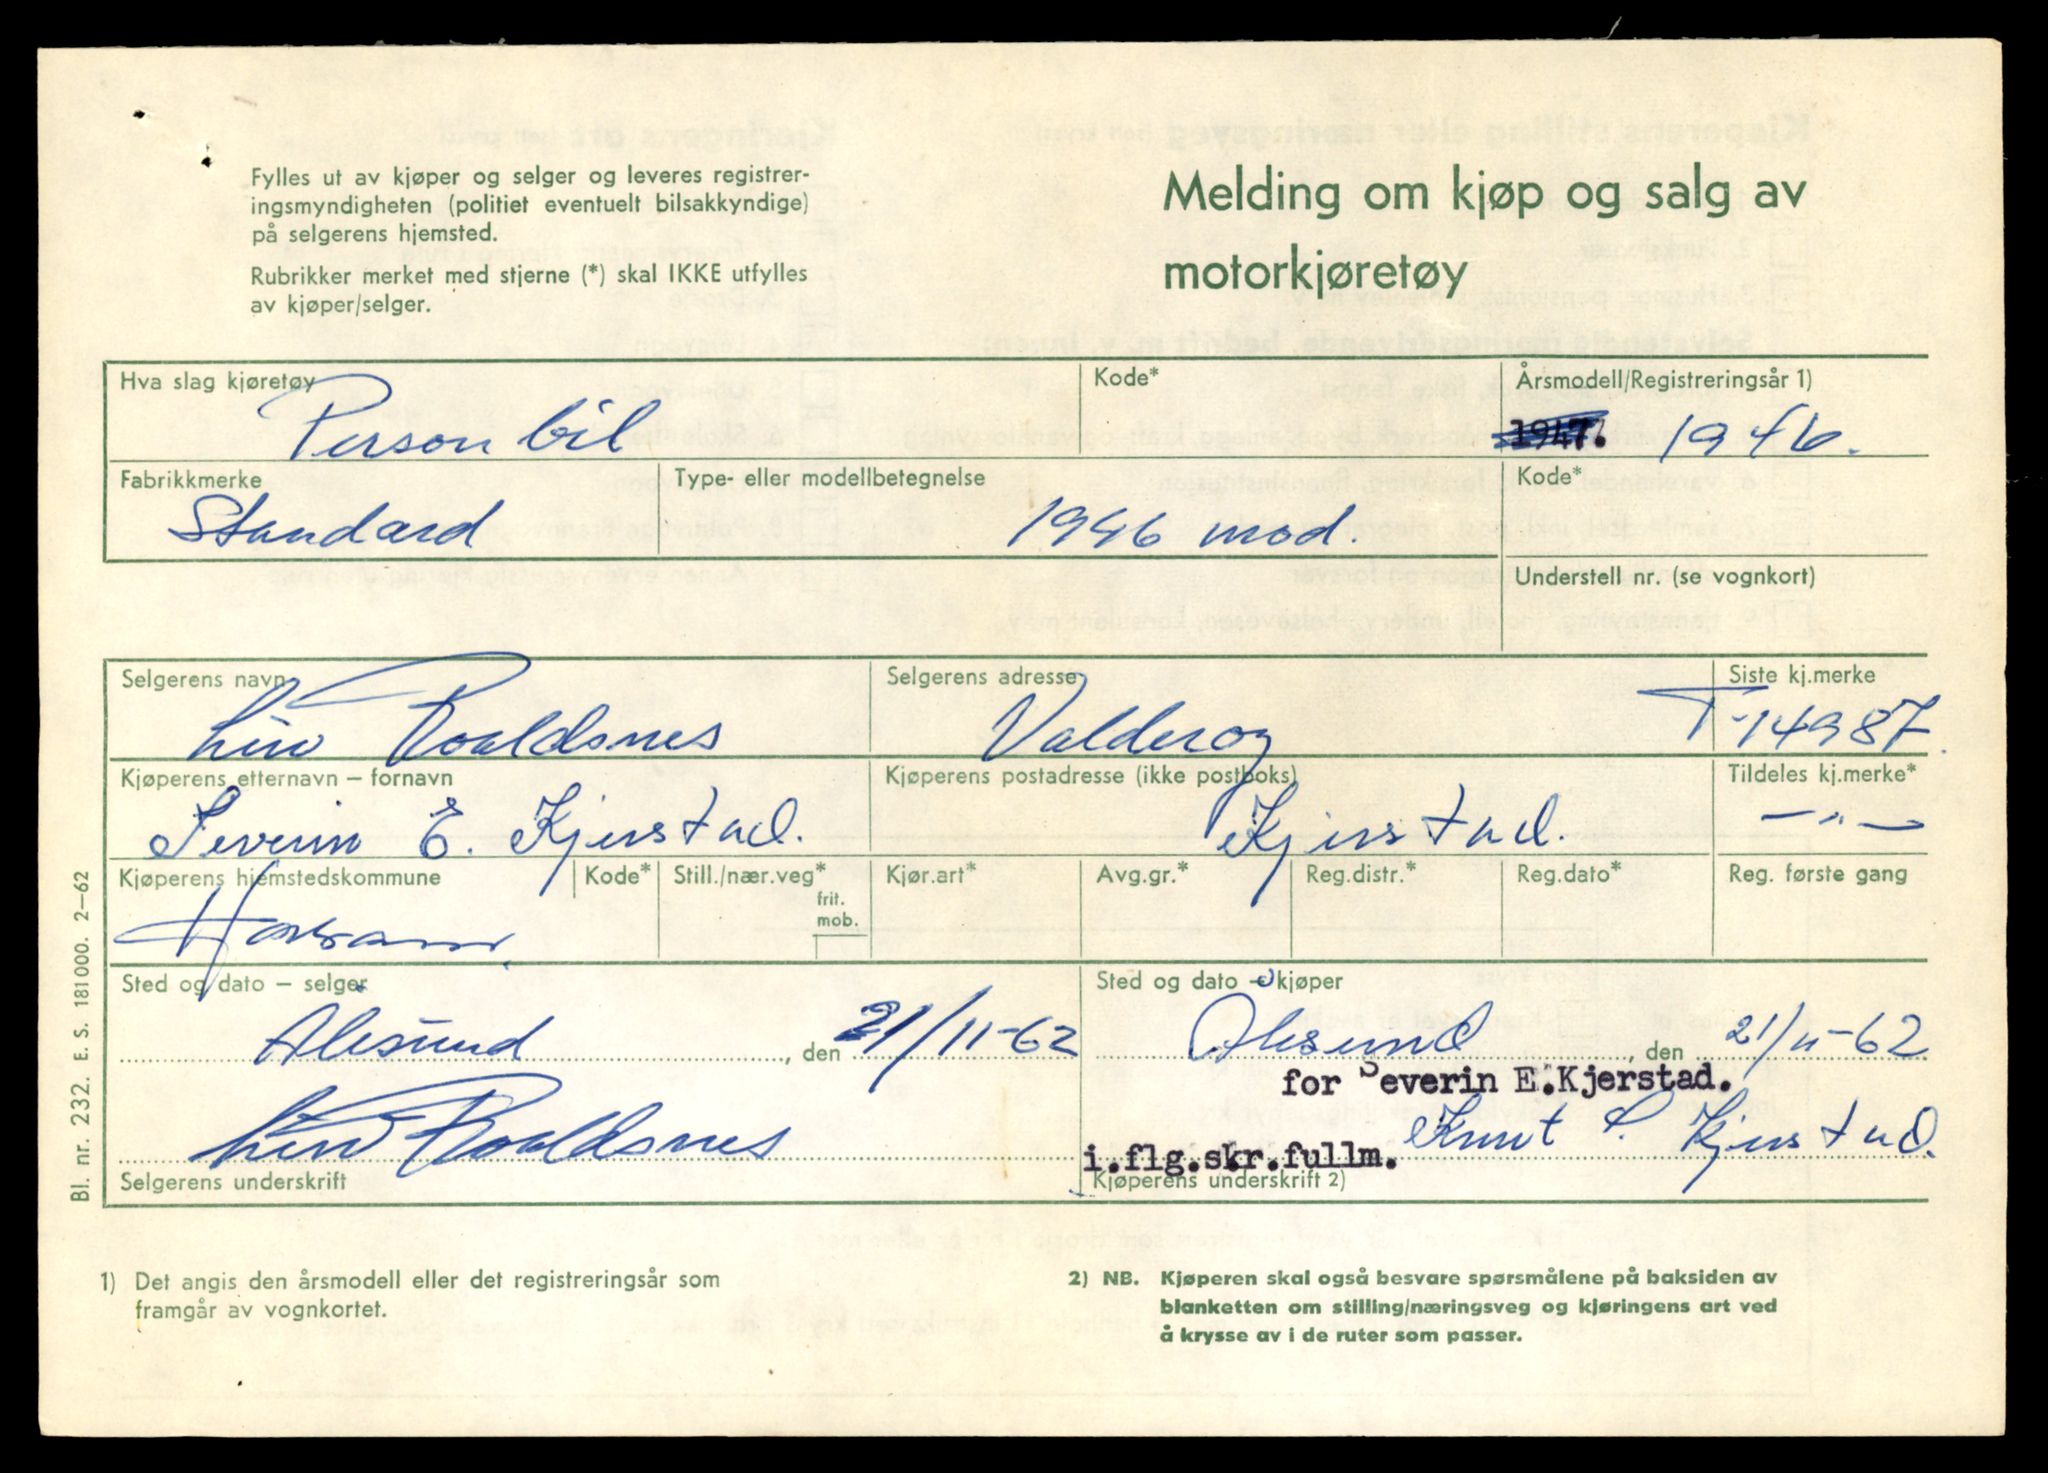 Fylles ut av kjøper og selger og leveres registrer-
ingsmyndigheten (politiet eventuelt bilsakkyndige)
på selgerens hjemsted.
Rubrikker merket med stjerne (*) skal IKKE utfylles
av kjøper/selger.
Melding om kjøp og salg av
motorkjøretøy
Hva slag kjøretøy
Kode*
Årsmodell/Registreringsår 1)
Person bil
1947. 1946.
Fabrikkmerke
Type- eller modellbetegnelse
Kode*
Standard
1946 mod.
Understell nr. (se vognkort)
Selgerens navn
Selgerens adresse
Siste kj.merke
Liv Roaldsnes
Valderøy
T-14987.
Kjøperens etternavn – fornavn
Kjøperens postadresse (ikke postboks)
Tildeles kj.merke*
Severin E. Kjerstad.
Kjerstad.
— " —
Kjøperens hjemstedskommune
Kode*
Still./nær.veg*
frit.
mob.
Kjør.art*
Avg.gr.*
Reg.distr.*
Reg.dato*
Reg. første gang
Sted og dato – selger
Sted og dato – kjøper
Ålesund, den 21/11-62
Ålesund, den 21/11-62
for Severin E.Kjerstad.
Liv Roaldsnes
i.flg.skr.fullm. Knut S. Kjerstad.
Selgerens underskrift
Kjøperens underskrift 2)
Bl. nr. 232. E. S. 181000. 2–62
1) Det angis den årsmodell eller det registreringsår som
framgår av vognkortet.
2) NB. Kjøperen skal også besvare spørsmålene på baksiden av
blanketten om stilling/næringsveg og kjøringens art ved
å krysse av i de ruter som passer.